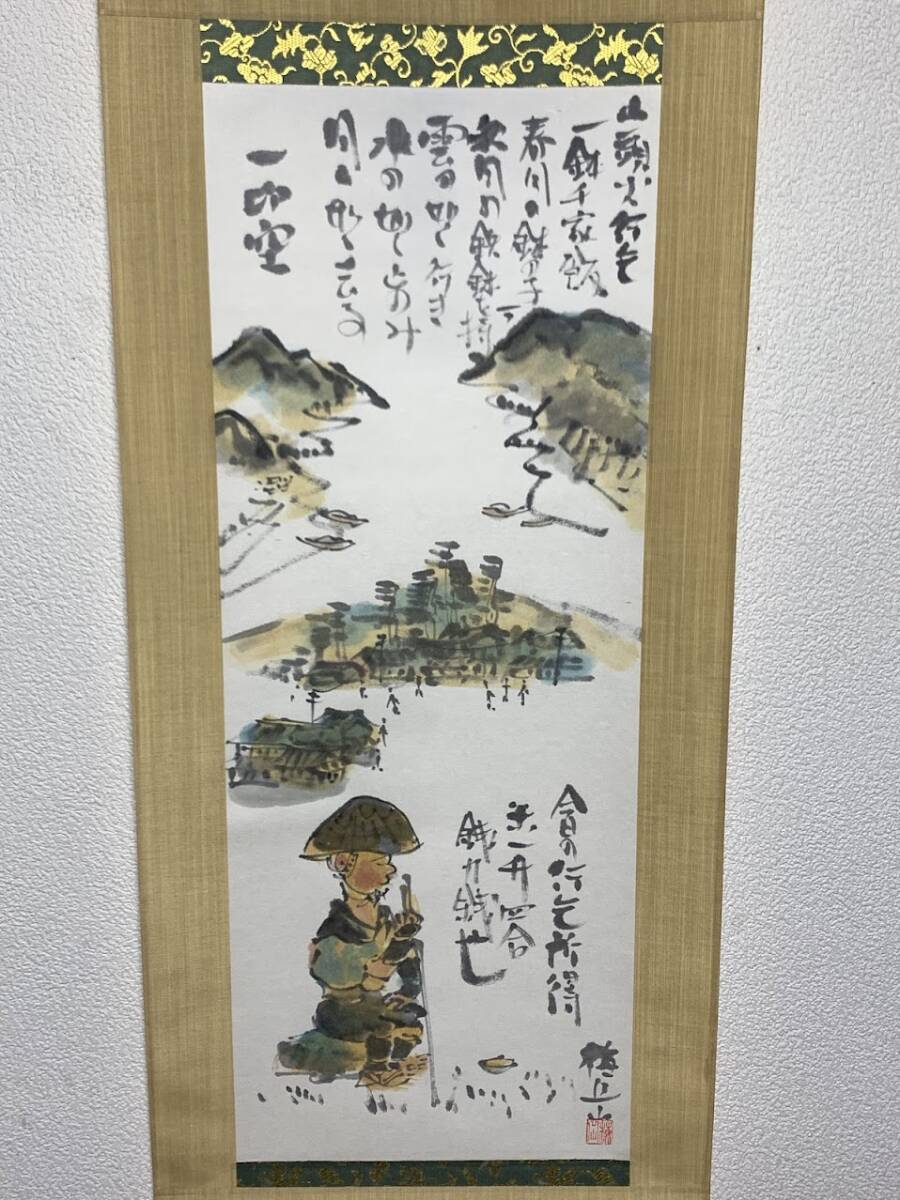 山頭火行乞
一鉢千家飯
春川の鉢の子一つ
秋風の鉄鉢を持つ
雲の如く行き
水の如く歩み
風の如く去る
一切空
今日の行乞所得
米一升四合
銭九銭也